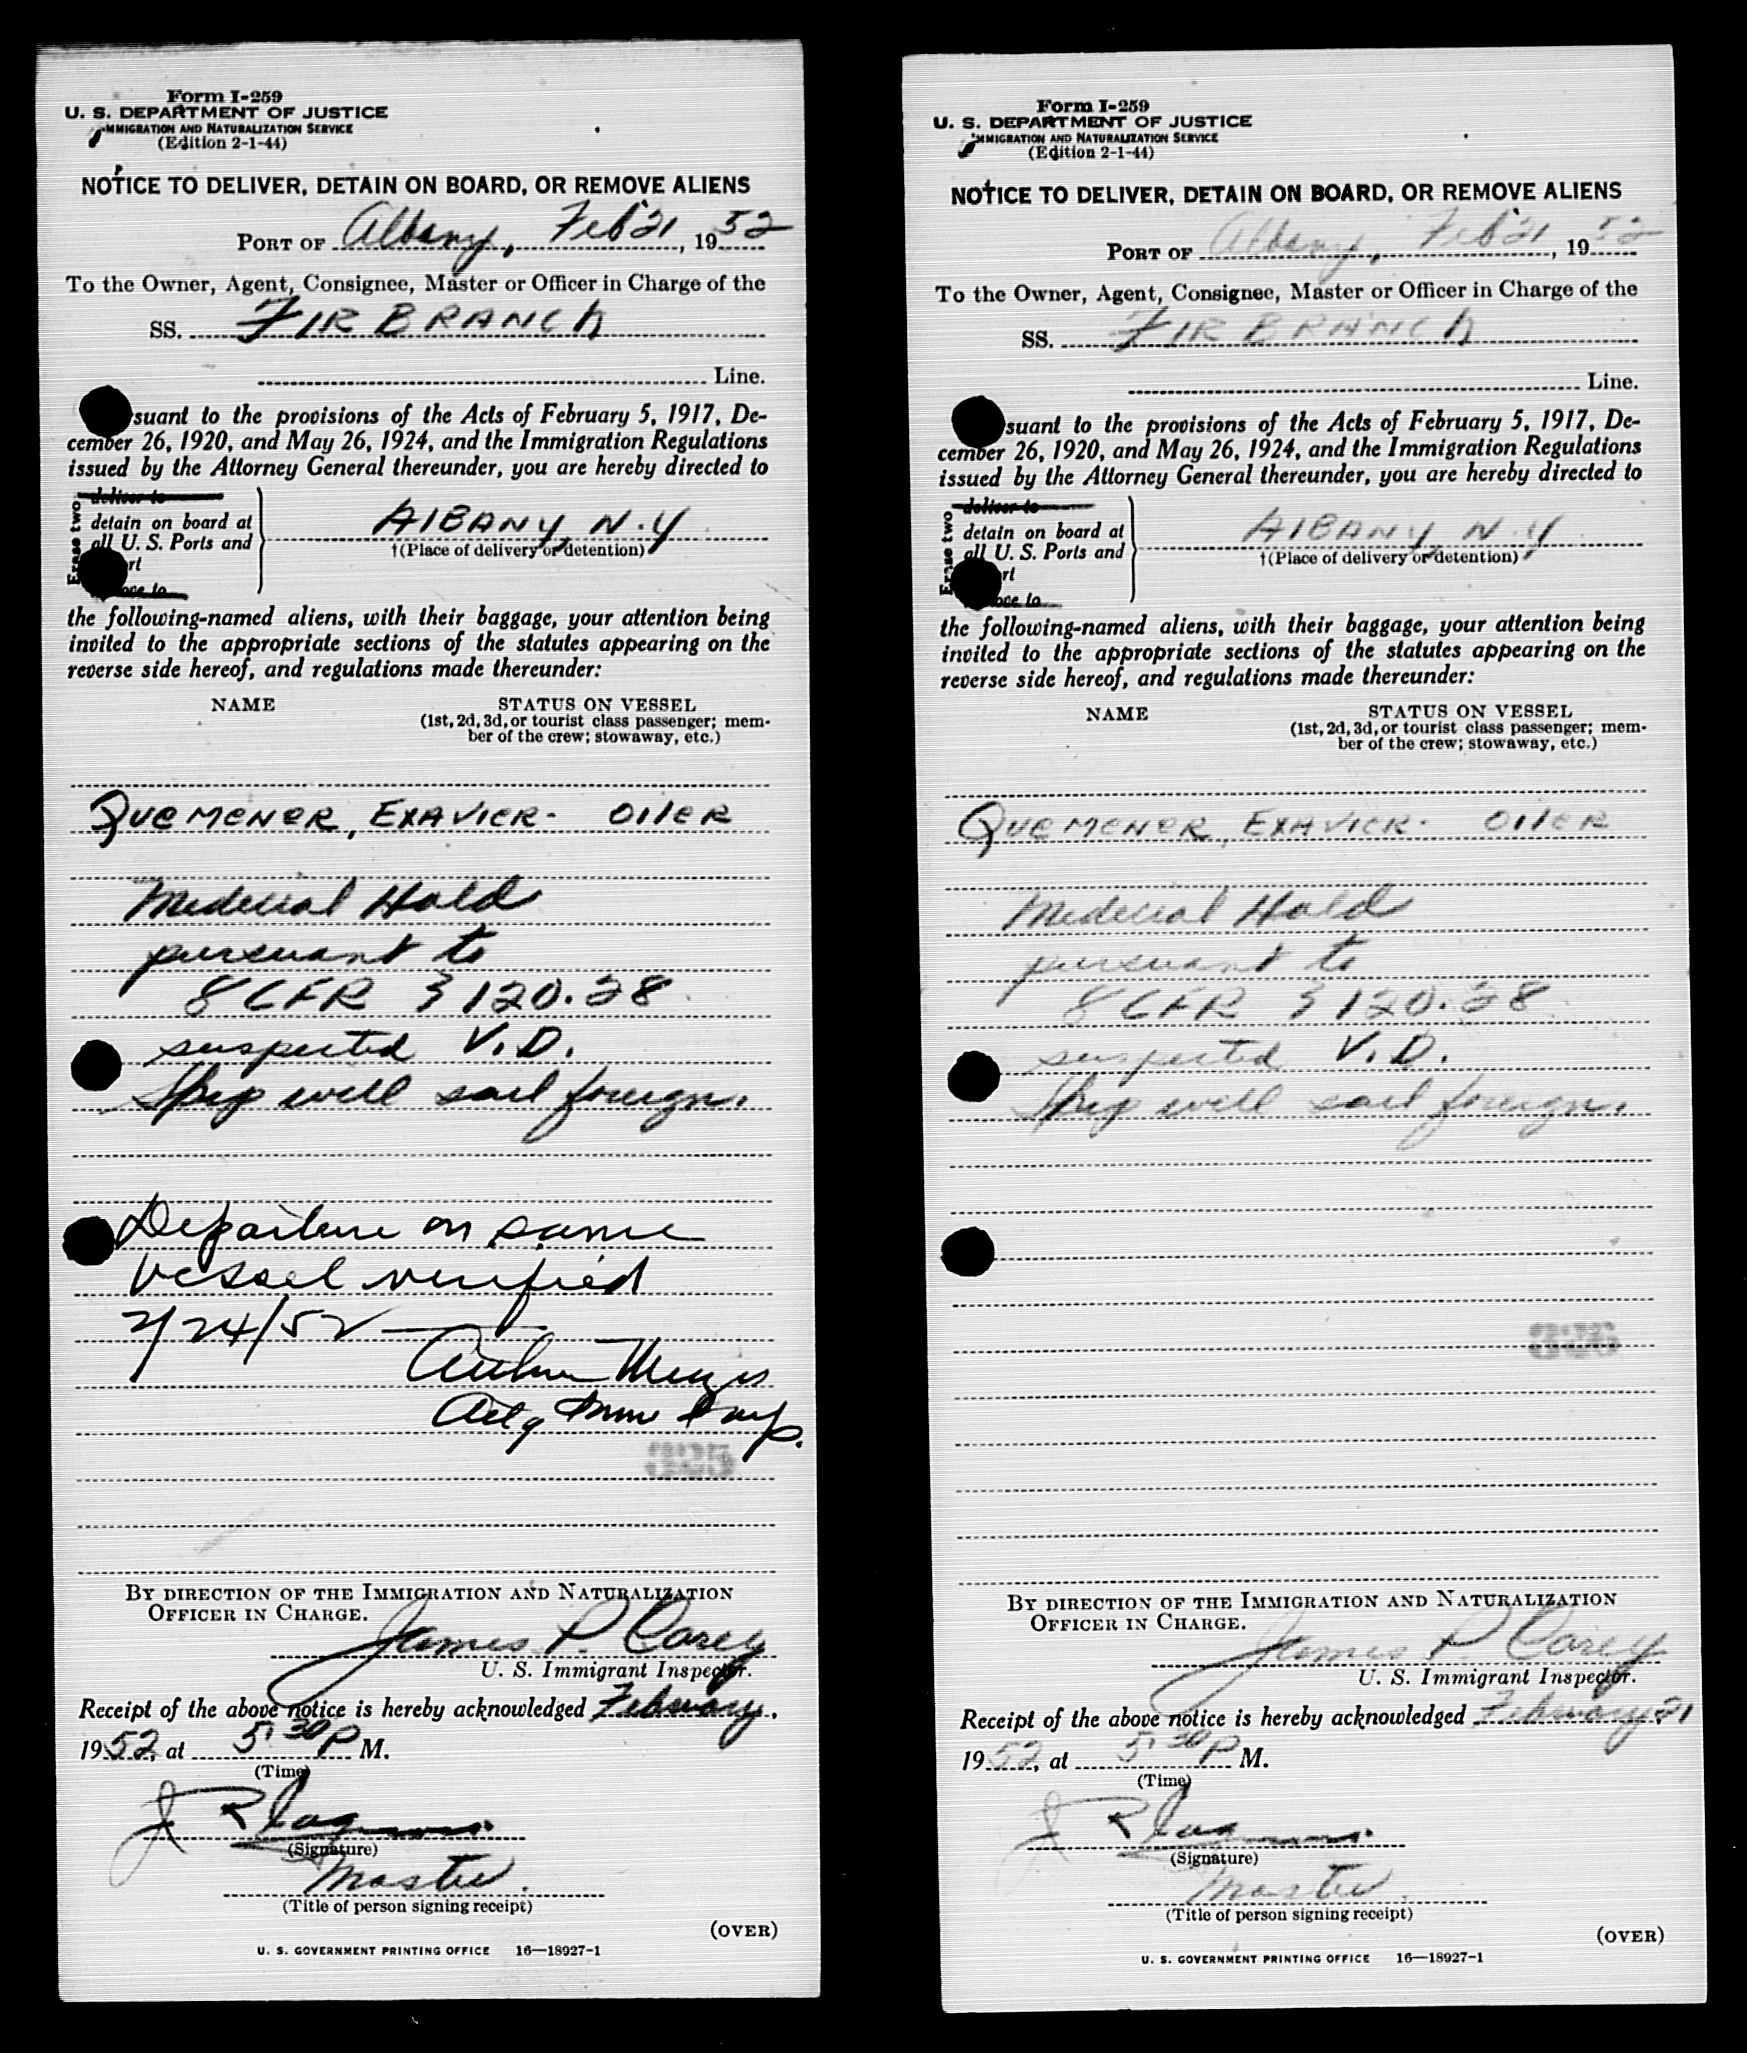 Form I-259
U. S. DEPARTMENT OF JUSTICE
IMMIGRATION AND NATURALIZATION SERVICE
(Edition 2-1-44)
NOTICE TO DELIVER, DETAIN ON BOARD, OR REMOVE ALIENS
PORT OF Albany, Feb 21, 1952
To the Owner, Agent, Consignee, Master or Officer in Charge of the
SS. FIR BRANCH
Line.
suant to the provisions of the Acts of February 5, 1917, De-
cember 26, 1920, and May 26, 1924, and the Immigration Regulations
issued by the Attorney General thereunder, you are hereby directed to
Erase two
deliver to
detain on board at
all U. S. Ports and
rt
ove to
AlBANY, N.Y
†(Place of delivery or detention)
the following-named aliens, with their baggage, your attention being
invited to the appropriate sections of the statutes appearing on the
reverse side hereof, and regulations made thereunder:
NAME
STATUS ON VESSEL
(1st, 2d, 3d, or tourist class passenger; mem-
ber of the crew; stowaway, etc.)
QUEMENER, EXAVIER - OILER
Medecial Hold
pursuant to
8 CFR § 120.28
suspected V.D.
Ship will sail foreign.
Departure on same
vessel verified
2/24/52
Arthur
Actg Imm Insp.
335
BY DIRECTION OF THE IMMIGRATION AND NATURALIZATION
OFFICER IN CHARGE.
James P. Carey
U. S. Immigrant Inspector.
Receipt of the above notice is hereby acknowledged February,
1952, at 5:30 P M.
(Time)
J R
(Signature)
Master.
(Title of person signing receipt)
(OVER)
U. S. GOVERNMENT PRINTING OFFICE 16—18927-1
Form I-259
U. S. DEPARTMENT OF JUSTICE
IMMIGRATION AND NATURALIZATION SERVICE
(Edition 2-1-44)
NOTICE TO DELIVER, DETAIN ON BOARD, OR REMOVE ALIENS
PORT OF Albany, Feb 21, 1952
To the Owner, Agent, Consignee, Master or Officer in Charge of the
SS. FIR BRANCH
Line.
suant to the provisions of the Acts of February 5, 1917, De-
cember 26, 1920, and May 26, 1924, and the Immigration Regulations
issued by the Attorney General thereunder, you are hereby directed to
Erase two
deliver to
detain on board at
all U. S. Ports and
rt
ove to
AlBANY, N.Y
†(Place of delivery or detention)
the following-named aliens, with their baggage, your attention being
invited to the appropriate sections of the statutes appearing on the
reverse side hereof, and regulations made thereunder:
NAME
STATUS ON VESSEL
(1st, 2d, 3d, or tourist class passenger; mem-
ber of the crew; stowaway, etc.)
QUEMENER, EXAVIER - OILER
Medecial Hold
pursuant to
8 CFR § 120.28
suspected V.D.
Ship will sail foreign.
BY DIRECTION OF THE IMMIGRATION AND NATURALIZATION
OFFICER IN CHARGE.
James P Carey
U. S. Immigrant Inspector.
Receipt of the above notice is hereby acknowledged February 21
1952, at 5:30 P M.
(Time)
J R
(Signature)
Master.
(Title of person signing receipt)
(OVER)
U. S. GOVERNMENT PRINTING OFFICE 16—18927-1